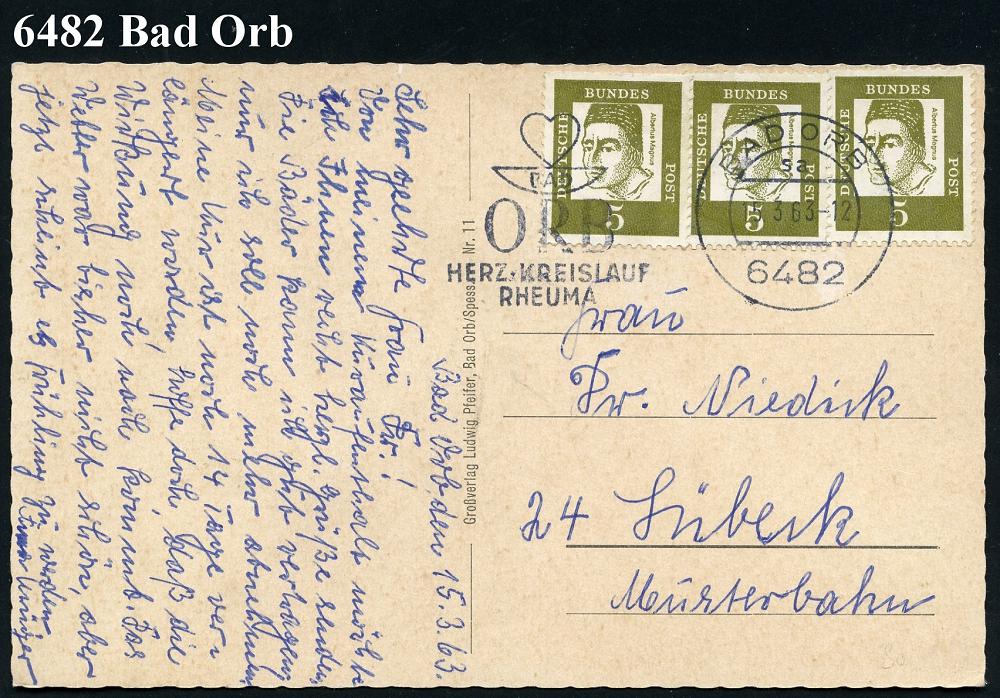 6482 Bad Orb
BUNDES
DEUTSCHE
POST
Albertus Magnus
5
BUNDES
DEUTSCHE
POST
Albertus Magnus
5
BUNDES
DEUTSCHE
POST
Albertus Magnus
5
BAD
ORB
HERZ-KREISLAUF
RHEUMA
BAD ORB
sa
3.63-12
6482
Frau
Dr. Niedick
24 Lübeck
Müsterbahn
Großverlag Ludwig Pfeifer, Bad Orb/Spess. Nr. 11
Bad Orb, den 15.3.63.
Sehr geehrte Frau Dr.!
Von meinem Kuraufenthalt möchte
ich Ihnen recht herzl. Grüße senden
Die Bäder kann ich gut vertragen
nur ich soll noch mehr abnehmen
Meine Kur ist noch 14 Tage ver-
längert worden, hoffe doch, daß die
Wirkung noch nach kommt. Das
Wetter war bisher nicht schön, aber
jetzt scheint es Frühling zu werden